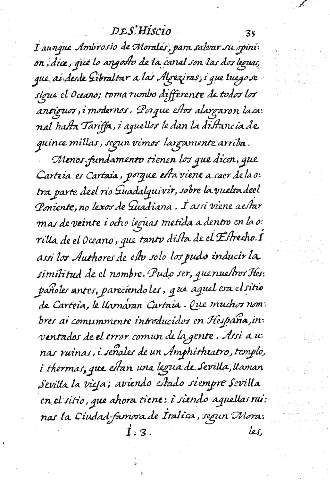 DE S. HISCIO 35
I aunque Ambrosio de Morales, para salvar su opini-
on, dice, que lo angosto de la canal son las dos leguas,
que ai desde Gibraltar a las Algeziras; i que luego se
sigue el Oceano; toma rumbo differente de todos los
antiguos, i modernos. Porque estos alargaron la ca-
nal hasta Tariffa, i aquellos le dan la distancia de
quince millas, segun vimos largamente arriba.
Menos fundamento tienen los que dicen, que
Carteia es Cartaia, porque esta viene a caer de la o-
tra parte de el rio Guadalquivir, sobre la vuelta de el
Poniente, no lexos de Guadiana. I assi viene a estar
mas de veinte i ocho leguas metida a dentro en la o-
rilla de el Oceano, que tanto dista de el Estrecho. I
assi los Authores de esto solo los pudo inducir la
similitud de el nombre. Pudo ser, que nuestros Hes-
pañoles antes, pareciendoles, que aquel era el sitio
de Carteia, le llamáran Cartaia. Que muchos nom-
bres ai comunmente introducidos en Hespaña, in-
ventados de el error comun de la gente. Assi a u-
nas ruinas, i señales de un Amphitheatro, templo,
i thermas, que estan una legua de Sevilla, llaman
Sevilla la vieja; aviendo estado siempre Sevilla
en el sitio, que ahora tiene: i siendo aquellas rui-
nas la Ciudad famosa de Italica, segun Mora-
I. 3. les,